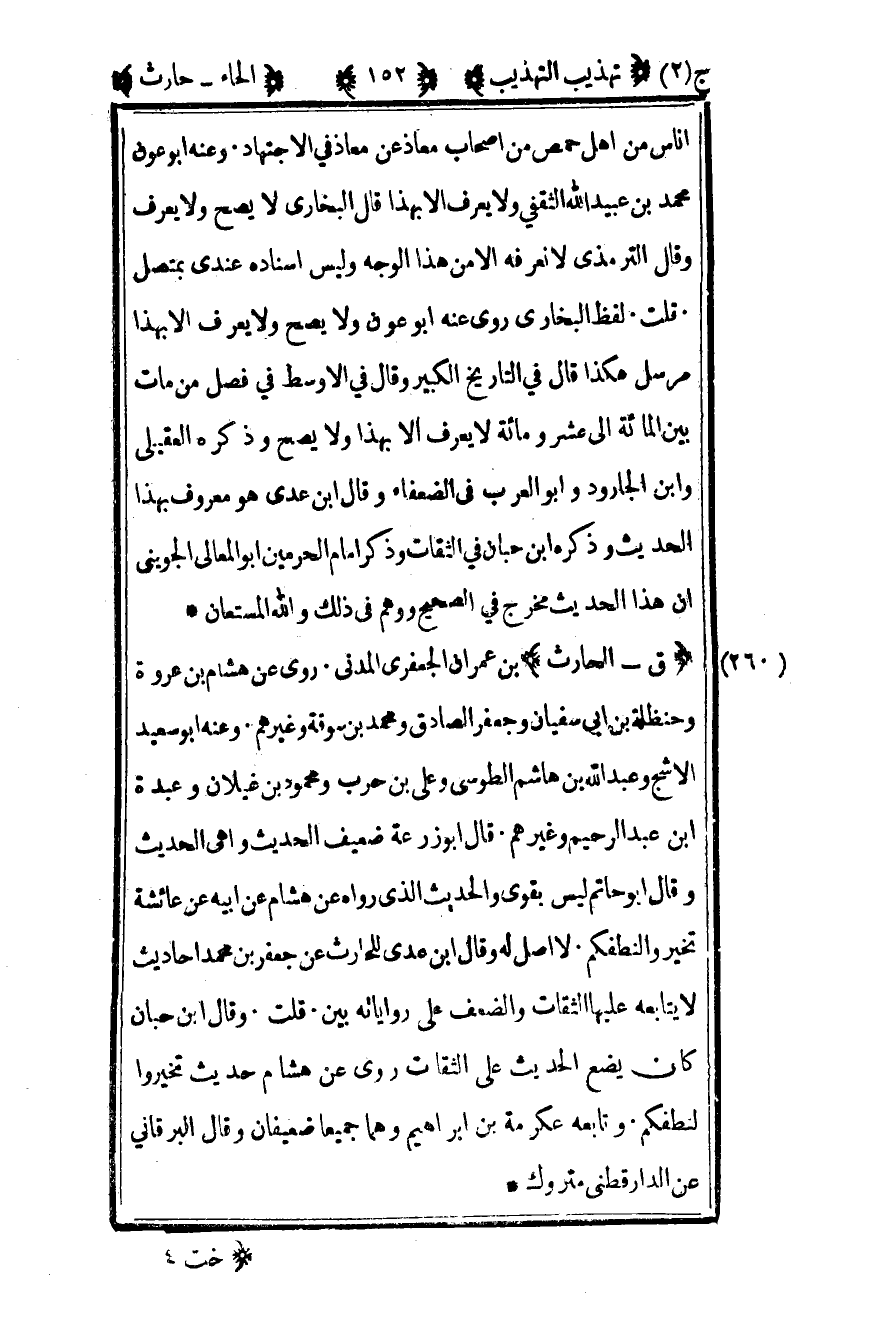 ج(٢) ﴿ تهذيب التهذيب ﴾ ﴿ ١٥٢ ﴾ ﴿ الحاء ـ حارث ﴾
اناس من اهل حمص من اصحاب معاذ عن معاذ في الاجتهاد · وعنه ابو عون
محمد بن عبيد الله الثقفي ولا يعرف الا بهذا قال البخارى لا يصح ولا يعرف
وقال الترمذى لا نعرفه الا من هذا الوجه وليس اسناده عندى بمتصل
· قلت · لفظ البخارى روى عنه ابو عون ولا يصح ولا يعرف الا بهذا
مرسل هكذا قال في التاريخ الكبير وقال في الاوسط في فصل من مات
بين المائة الى عشر ومائة لا يعرف الا بهذا ولا يصح وذكره العقيلى
وابن الجارود وابو العرب فى الضعفاء وقال ابن عدى هو معروف بهذا
الحديث وذكره ابن حبان في الثقات وذكر امام الحرمين ابو المعالى الجوينى
ان هذا الحديث مخرج في الصحيح ووهم فى ذلك والله المستعان *
(٢٦٠) ﴿ ق ـ الحارث ﴾ بن عمران الجعفرى المدنى · روى عن هشام بن عروة
وحنظلة بن ابي سفيان وجعفر الصادق ومحمد بن سوقة وغيرهم · وعنه ابو سعيد
الاشج وعبد الله بن هاشم الطوسى وعلى بن حرب ومحمود بن غيلان وعبدة
ابن عبد الرحيم وغيرهم · قال ابو زرعة ضعيف الحديث واهى الحديث
وقال ابو حاتم ليس بقوى والحديث الذى رواه عن هشام عن ابيه عن عائشة
تخير والنطفكم · لا اصل له وقال ابن عدى للحارث عن جعفر بن محمد احاديث
لا يتابعه عليها الثقات والضعف على رواياته بين · قلت · وقال ابن حبان
كان يضع الحديث على الثقات روى عن هشام حديث تخيروا
لنطفكم · وتابعه عكرمة بن ابراهيم وهما جميعا ضعيفان وقال البرقاني
عن الدارقطنى متروك *
﴿ خت ٤